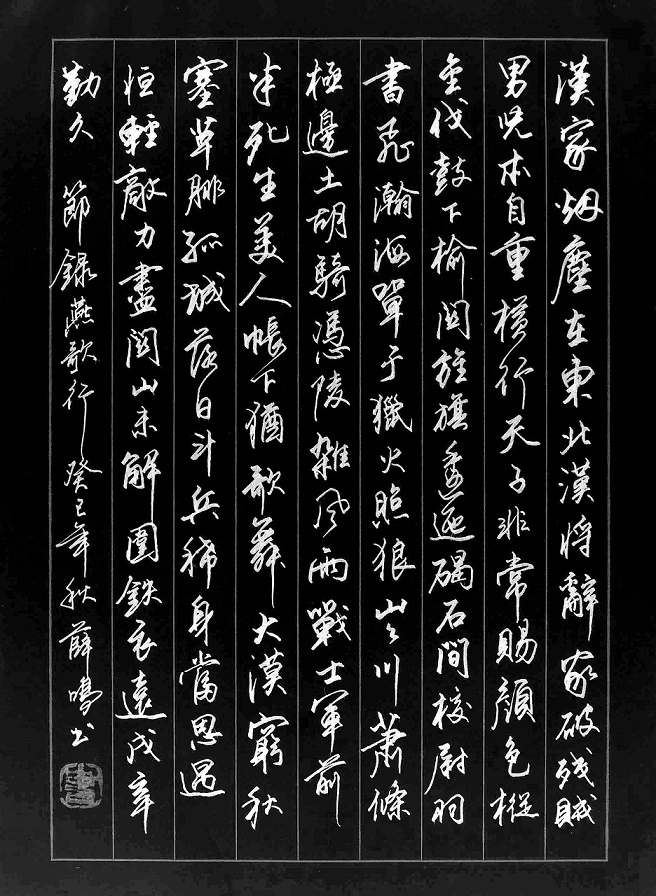 漢家烟塵在東北漢將辭家破殘賊
男兒本自重橫行天子非常賜顏色摐
金伐鼓下榆関旌旗逶迤碣石間校尉羽
書飛瀚海單于獵火照狼山山川蕭條
極邊土胡騎憑陵雜風雨戰士軍前
半死生美人帳下猶歌舞大漠窮秋
塞草腓孤城落日斗兵稀身當恩遇
恒輕敵力盡関山未解圍鉄衣遠戍辛
勤久 節錄燕歌行癸巳年秋薛鳴书